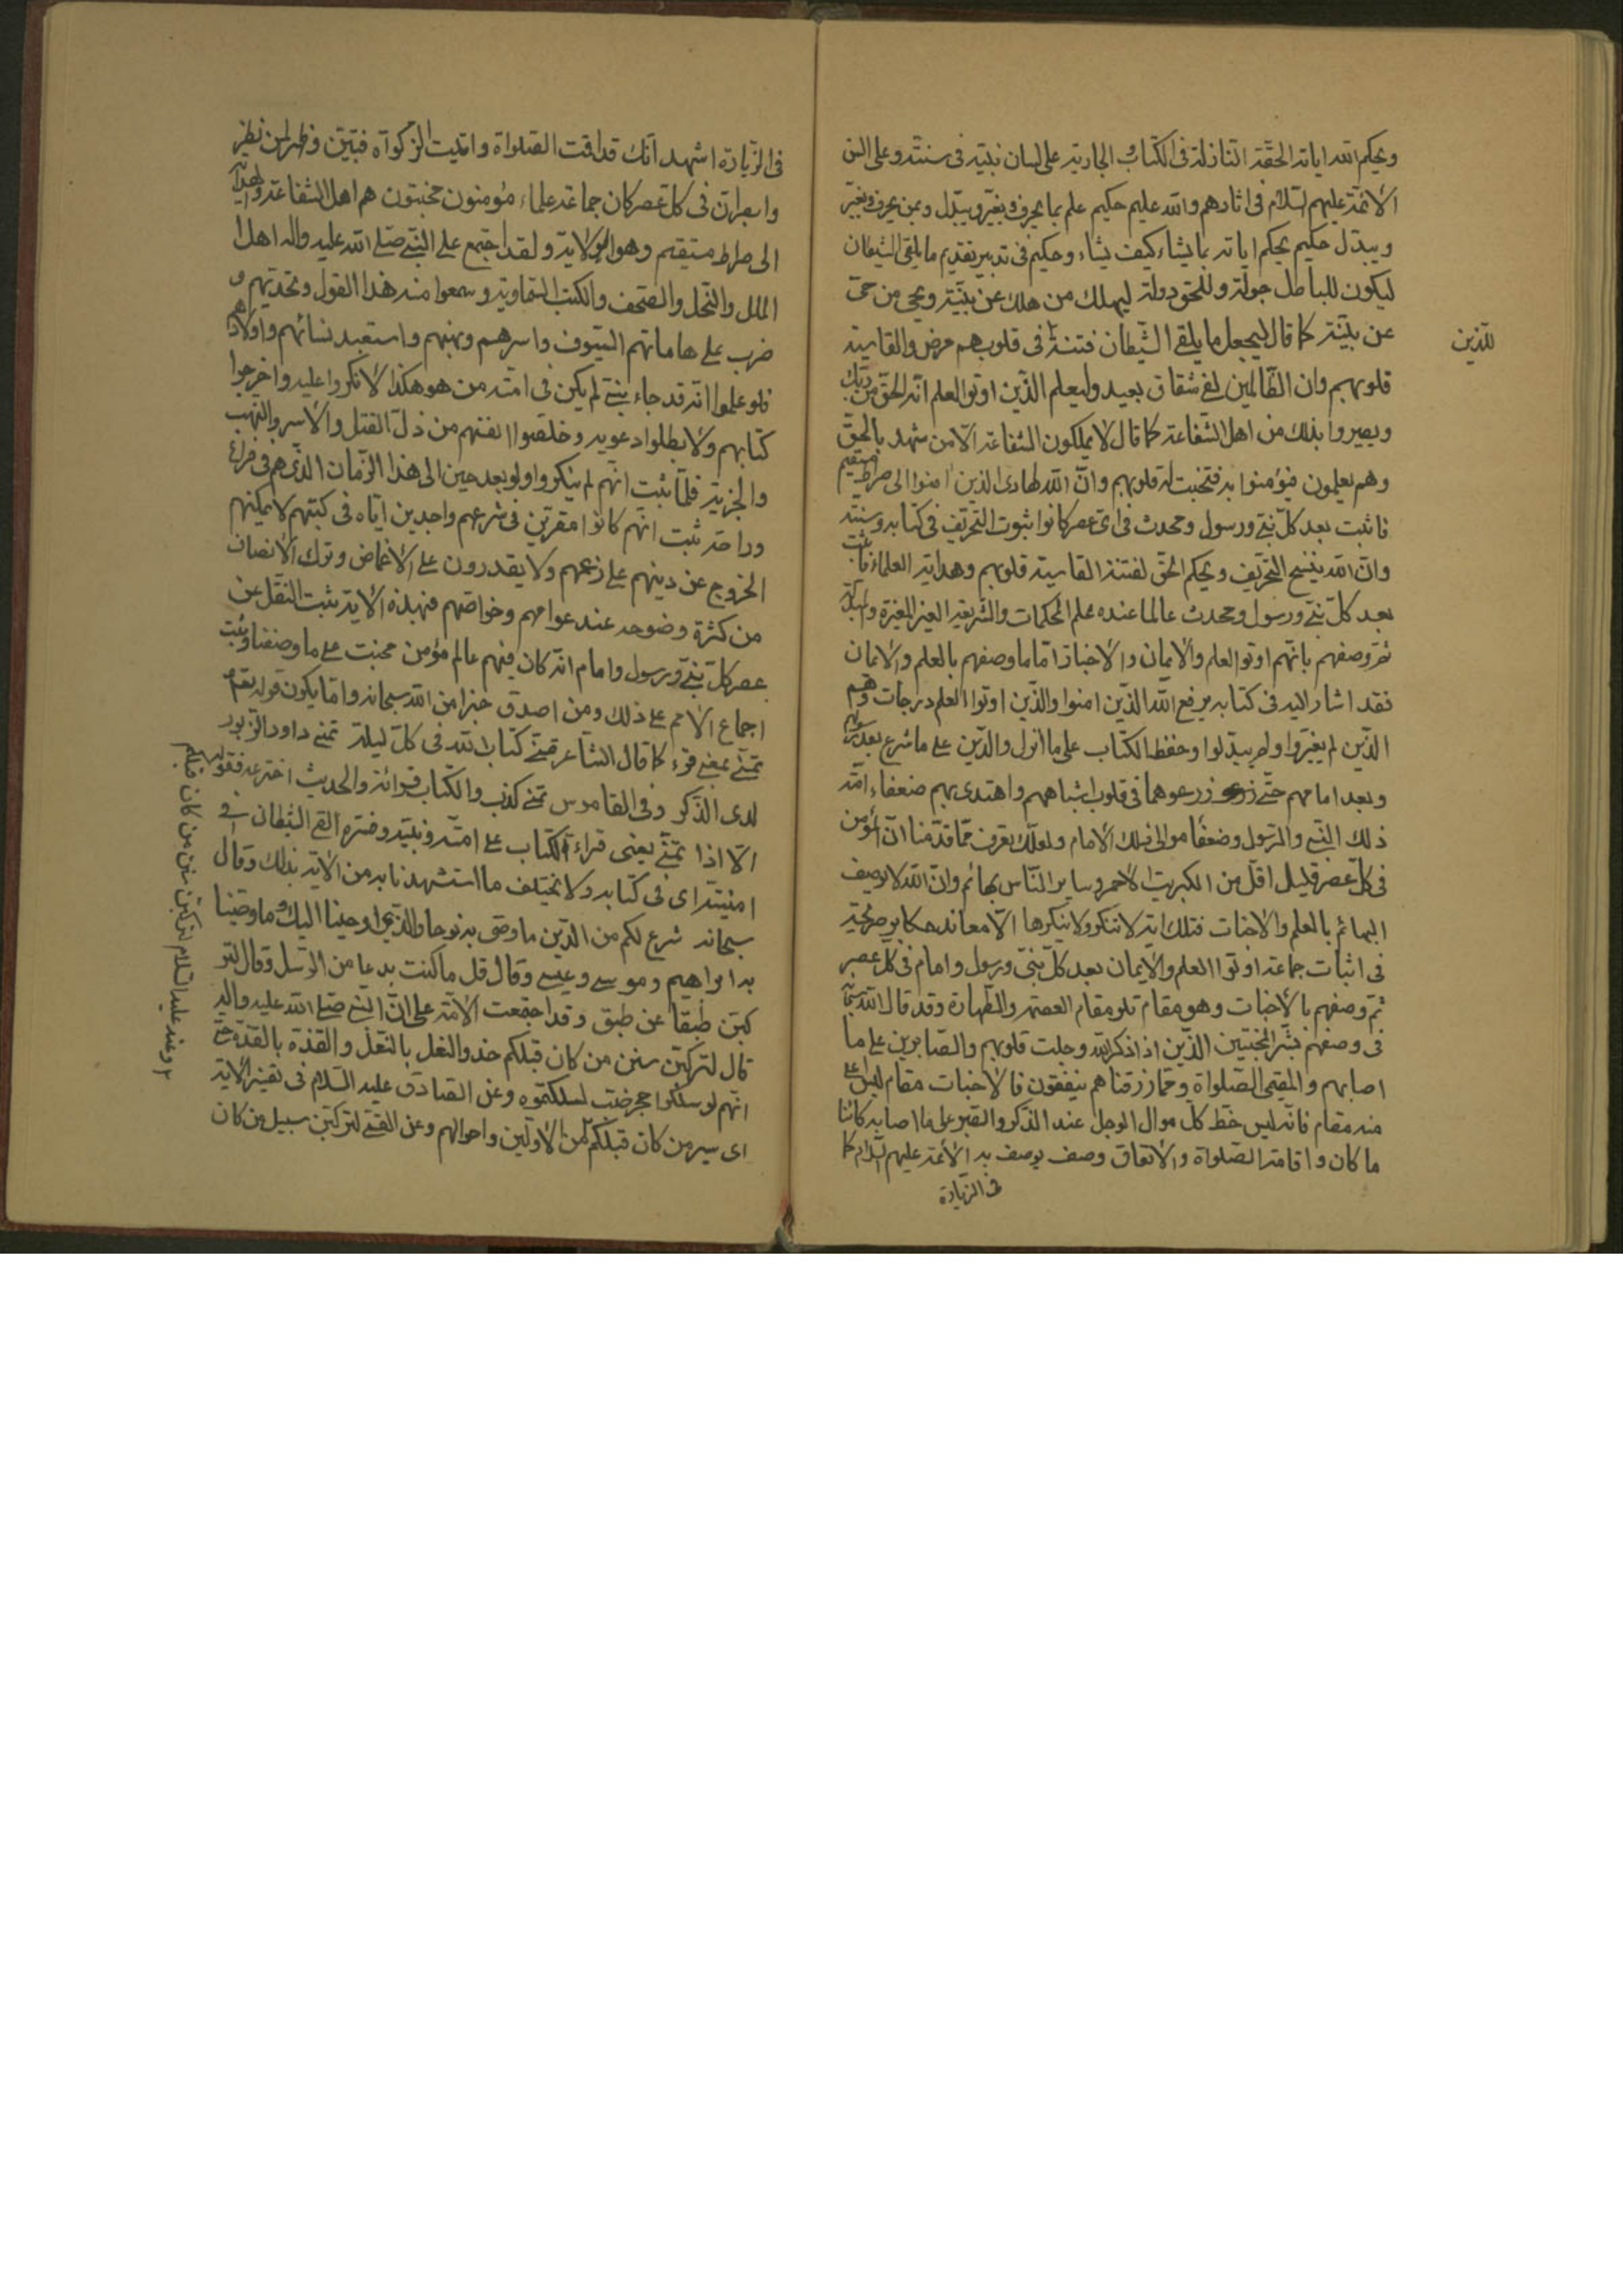 ويحكم الله اياته الحقة النازلة فى الكتاب و الجارية على لسان نبيّه فى سنته وعلى السن
الائمة عليهم السّلام فى اثارهم والله عليم حكيم علم بما يحرف ويغيّر ويبدّل وبمن يحرف ويغيّر
ويبدّل حكيم يحكم اياته بما يشاء كيف يشاء وحكيم فى تدبير تقديم ما يلقى الشيطان
ليكون للباطل جولة وللحق دولة ليهلك من هلك عن بيّنة ويحيى من حىّ
عن بيّنة كما قال ليجعل ما يلقى الشّيطان فتنة فى قلوبهم مرض والقاسية
للّذين
قلوبهم وان الظّالمين لفى شقاق بعيد وليعلم الذّين اوتوا العلم انّه الحقّ من ربّك
ويصيروا بذلك من اهل الشفاعة كما قال لا يملكون الشفاعة الّا من شهد بالحقّ
وهم يعلمون فيؤمنوا به فتخبت له قلوبهم وانّ الله لهادى الذين امنوا الى صراط مستقيم
فاثبت بعد كلّ نبىّ ورسول ومحدث فى اى عصر كانوا ثبوت التحريف فى كتابه وسنته
وانّ الله ينسخ التحريف ويحكم الحق لفتنة القاسية قلوبهم وهداية العلماء فاثبت
بعد كلّ نبىّ ورسول ومحدث عالما عنده علم المحكمات والشريعة الغير المغيّرة والمبدّلة
ثمّ وصفهم بانّهم اوتوا العلم والايمان والاخبات اما ما وصفهم بالعلم والايمان
فقد اشار اليه فى كتابه يرفع الله الذّين امنوا والذّين اوتوا العلم درجات وهم
الذّين لم يغيّروا ولم يبدّلوا وحفظ الكتاب على ما انزل والدّين على ما شرع بعد رسولهم
وبعد امامهم حتّى زرعوهما فى قلوب اشباههم واهتدى بهم ضعفاء امّة
ذلك النّبى والرّسول وضعفاء موالى ذلك الامام ولعلّك تعرف ممّا قدّمنا انّ المؤمن
فى كلّ عصر قليل اقل من الكبريت الاحمر وساير النّاس بهائم وانّ الله لا يوصف
البهائم بالعلم والاخبات فتلك اية لا تنكر ولا ينكرها الّا معاند مكابر صريحة
فى اثبات جماعة اوتوا العلم والايمان بعد كلّ نبىّ ورسول وامام فى كلّ عصر
ثمّ وصفهم بالاخبات وهو مقام تلو مقام العصمة والطهارة وقد قال الله سبحانه
فى وصفهم بشّر المخبتين الذّين اذا ذكر الله وجلت قلوبهم والصّابرين على ما
اصابهم والمقيمى الصّلواة وممّا رزقناهم ينفقون فالاخبات مقام ليس اعلى
منه مقام فانّه ليس حظ كلّ موال الوجل عند الذكر والصّبر على ما اصابه كائنا
ما كان واقامة الصّلواة والانفاق وصف يوصف به الائمّة عليهم السّلام كما
فى الزّيارة
فى الزّيارة اشهد انّك قد اقمت الصّلواة واتيت الزّكوة فتبيّن وظهر لمن نظر
وابصر انّ فى كلّ عصر كان جماعة علماء مؤمنون مخبتون هم اهل الشفاعة والهداية
الى صراط مستقيم وهو الولاية ولقد اجتمع على النّبى صلّى الله عليه واله اهل
الملل والنّحل والصّحف والكتب السّماوية وسمعوا منه هذا القول وتحدّيهم و
ضرب على هاماتهم السّيوف واسرهم ونهبهم واستعبد نسائهم واولادهم
فلو علموا انّه قد جاء نبىّ لم يكن فى امّته من هو هكذا لانكروا عليه واخرجوا
كتابهم ولابطلوا دعويه وخلّصوا انفسهم من ذلّ القتل والاسر والنهب
والجزية فلمّا ثبت انّهم لم ينكروا ولو بعد حين الى هذا الزّمان الذّى هم فى فراغ
وراحة ثبت انّهم كانوا مقرّين فى شرعهم واجدين ايّاه فى كتبهم لا يمكنهم
الخروج عن دينهم على زعمهم ولا يقدرون على الاغماض وترك الانصاف
من كثرة وضوحه عند عوامهم وخواصّهم فبهذه الاية ثبت النّقل عن
عصر كلّ نبىّ ورسول وامام انّه كان فيهم عالم مؤمن مخبت على ما وصفنا وثبت
اجماع الامم على ذلك ومن اصدق خبرا من الله سبحانه وامّا يكون قوله تعم
تمنّى بمعنى قرء كما قال الشّاعر تمنّى كتاب الله فى كلّ ليلة تمنّى داود الزّبور
لدى الذّكر وفى القاموس تمنّى كذب والكتاب قرائه والحديث اخترعه فقوله
الّا اذا تمنّى يعنى قراءة الكتاب على امّته وبيّنه وفسّره القى الشّيطان فى
امنيته اى فى كتابه ولا يختلف ما استشهدنا به من الاية بذلك وقال
سبحانه شرع لكم من الدّين ما وصّى به نوحا والذّى اوحينا اليك وما وصّينا
به ابراهيم وموسى وعيسى وقال قل ما كنت بدعا من الرّسل وقال لتر
كبنّ طبقا عن طبق وقد اجتمعت الامّة على انّ النّبى صلّى الله عليه واله
قال لتركبنّ سنن من كان قبلكم حذو النعل بالنعل والقذة بالقذة حتّى
انّهم لو سلكوا حجر ضبّ لسلكتموه وعن الصادق عليه السّلام فى تفسير الاية
اى سير من كان قبلكم من الاوّلين واحوالهم وعن القمّى لتركبنّ سبيل من كان
وعنه عليه السّلام لتركبنّ سنن من كان قبلكم